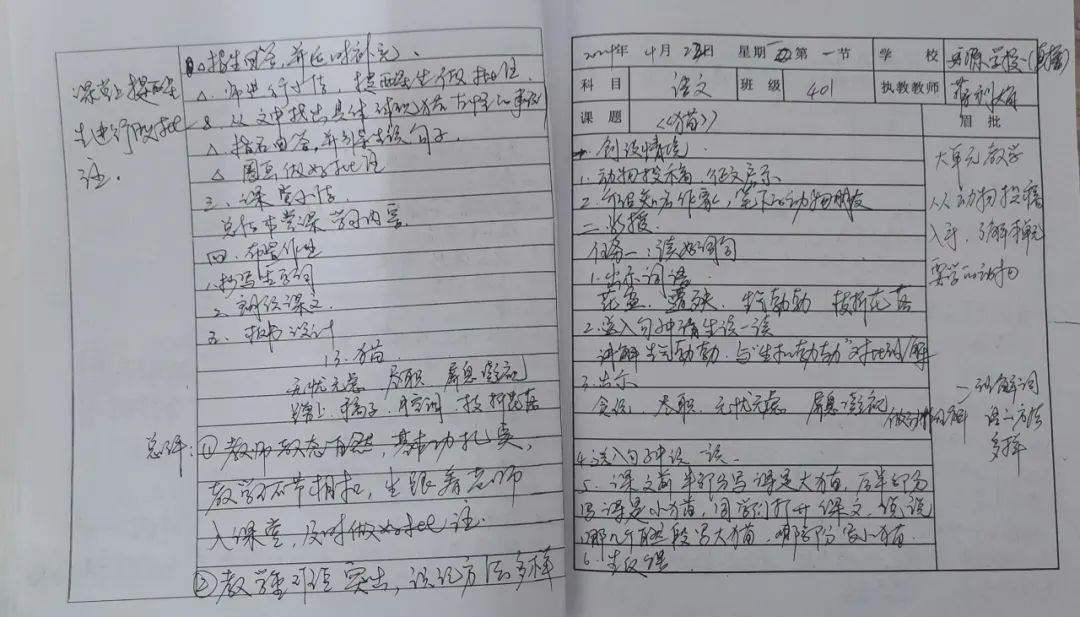 △指生回答,并及时补充、
△、师进行小结,提醒学生做批注
3、从文中找出具体
△指名回答,并引导学生读句子
△ 圈画做好批注
三、课堂小结
总结本堂课学习内容
四、布置作业
1、抄写生字词
2、朗读课文
五、板书设计
13、猫
无忧无虑 尽职 屏息凝视
蹭 稿子 枝折花落
课堂上提醒学
生进行做批
注.
总评:①教师教态自然,基本功扎实,
教学环节相扣,生跟着老师
入课堂,及时做好批注.
②教学重难点突出,识记方法多样
2024年 4月 日 星期 第一节 学校
科目 语文 班级 401 执教教师
课题 《猫》 眉批
一、创设情境
1、动物投稿,征文启示
2、介绍类名作家,笔下的动物朋友
二、新授
任务一:读好词句
1、出示词语
生气勃勃 枝折花落
2、送入句中请生读一读
讲解生气勃勃,与“生机勃勃”对比理解
3、出示
贪玩、尽职、无忧无虑 屏息凝视
做动作理解
4、送入句子中读一读、
5、课文前半部分写课是大猫,后半部分
写课是小猫,同学们打开课文,读读
哪几个自然段写大猫,哪部分写小猫.
6、生反馈
大单元教学
从动物投稿
入手,了解本单元
要学的动物
理解词
语的方法
多样